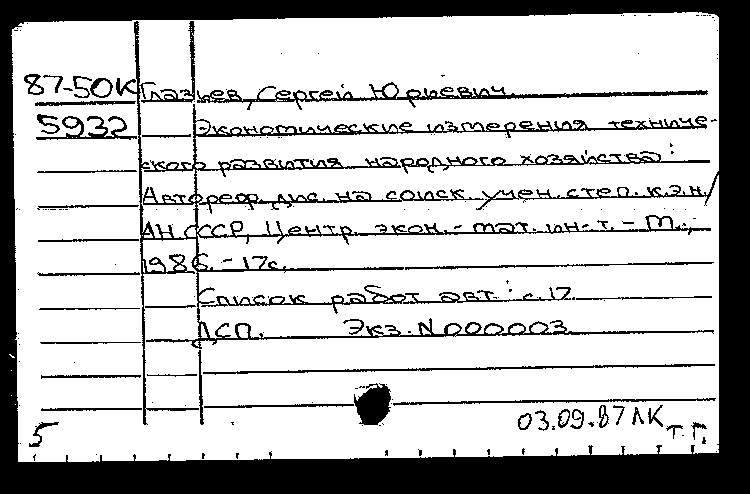 87-50К Глазьев, Сергей Юрьевич.
5932 Экономические измерения техниче-
ского развития народного хозяйства:
Автореф. дис. на соиск. учен. степ. к.э.н./
АН СССР, Центр. экон.-мат. ин-т. - М.,
1986. - 17с.
Список работ авт.: с. 17
ДСП. Экз. N 000003
03.09.87 ЛК
Т.Г.
5